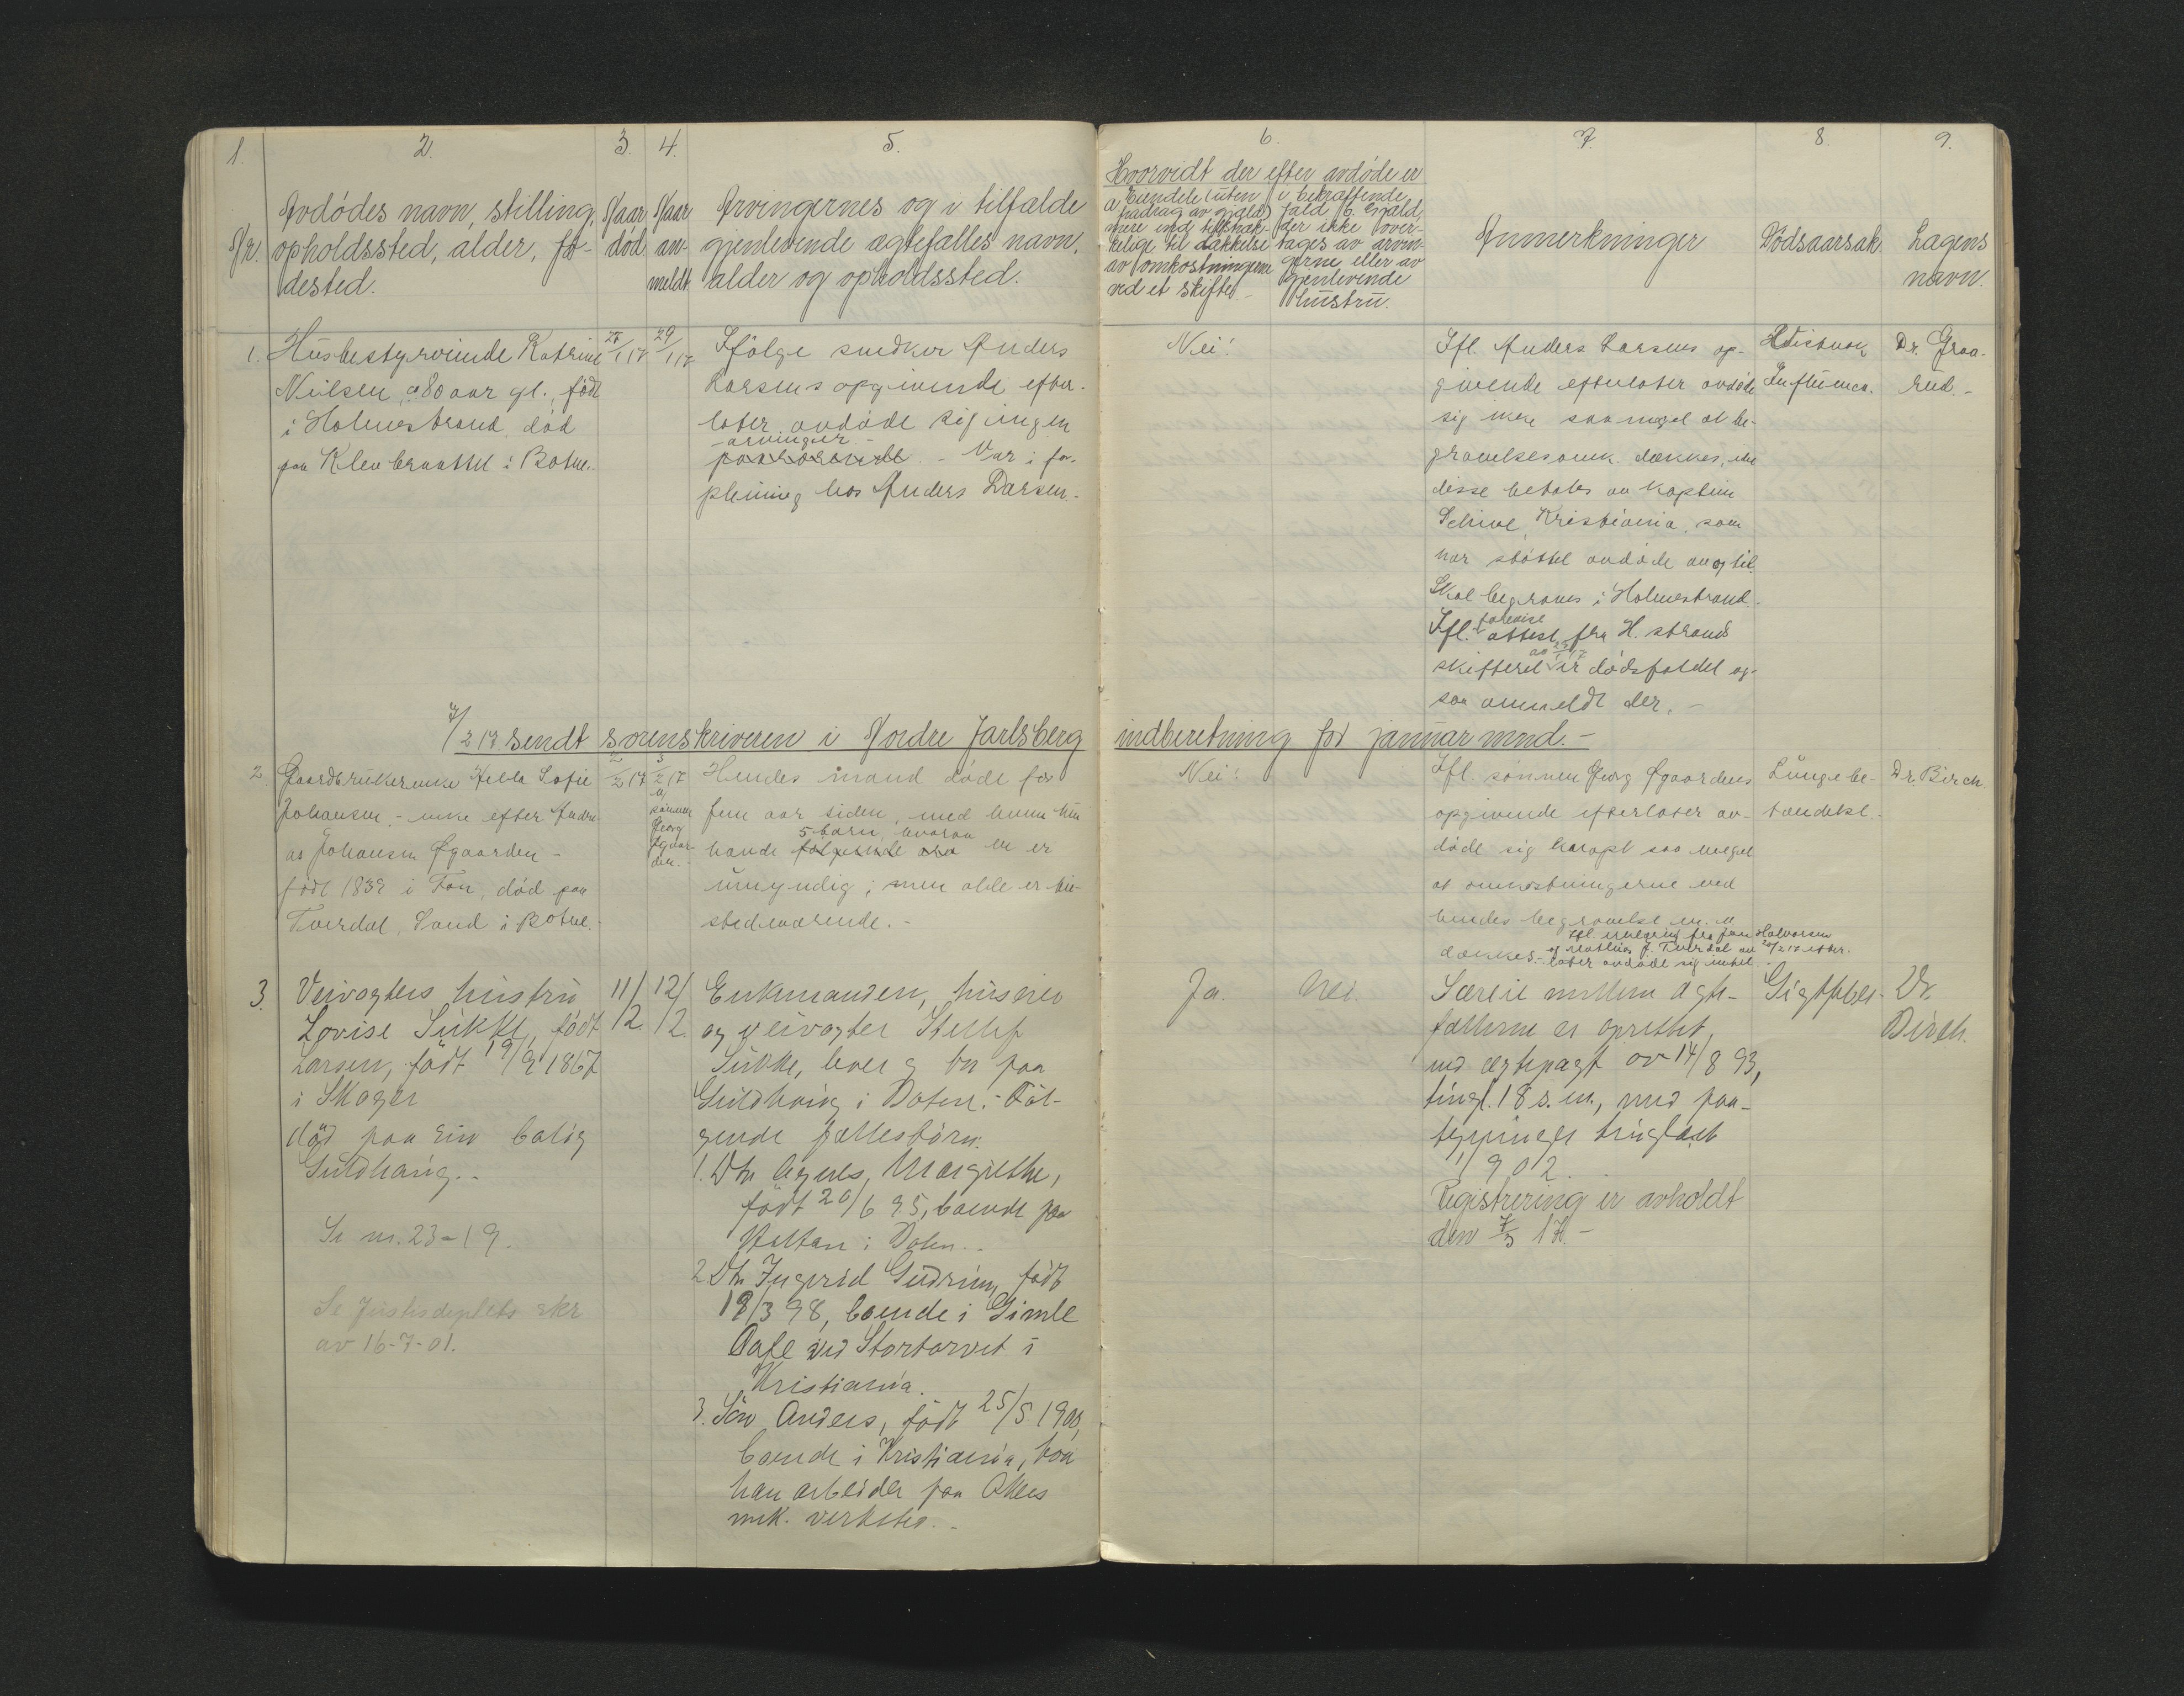 1.
2.
3.
4.
5.
6.
7.
8.
9.
Nr.
Avdødes navn, stilling,
opholdssted, alder, fø-
dested.
Naar
død.
Naar
an-
meldt.
Arvingernes og i tilfælde
gjenlevende ægtefælles navn,
alder og opholdssted.
Hvorvidt der efter avdøde er
a. Eiendele (uten
fradrag av gjæld)
mere end tilstræk-
kelige til dækkelse
av omkostningerne
ved et skifte. -
i bekræftende
fald b. Gjæld,
der ikke over-
tages av arvin-
gerne eller av
gjenlevende
hustru.
Anmerkninger
Dødsaarsak.
Lægens
navn.
1. Husbestyrerinde Katrine
Nilsen, 80 aar gl., født
i Holmestrand, død
paa Klevbraatel i Botne.
28/1 17
29/1 17
Ifølge snedker Anders
Larsens opgivende efter-
later avdøde sig ingen
- arvinger -
paarørende. - Var i for-
pleining hos Anders Larsen.
Nei.
Ifl. Anders Larsens op-
givende efterlater avdøde
sig ikke saa meget at be-
gravelsesomk. dækkes, idet
disse betales av kaptein
Schive, Kristiania, som
har støttet avdøde av og til.
Skal begraves i Holmestrand.
Ifl. attest fra H.strands
skifteret er dødsfaldet og-
saa anmeldt der. -
Influenca.
Dr. Graa-
rud. -
7/2 17. sendt sorenskriveren i Nordre Jarlsberg indberetning for januar mnd. -
2. Gaardbrukerenke Helle Sofie
Johansen, - enke efter Andre-
as Johansen Øgaarden -
født 1832 i Fon, død paa
Tverdal, Sand i Botne.
2/2 17
5/2 17
av
sønnen
Georg
Øgaar-
den. -
Hendes mand døde for
fem aar siden, med hvem hun
5 barn, hvorav
havde følgende en er
umyndig; men alle er tit-
stedeværende. -
Nei.
Ifl. sønnen Georg Øgaardens
opgivende efterlater av-
døde sig knapt saa meget
at omkostningerne ved
hendes begravelse m. v.
dækkes. -
Ifl. melding fra Halvorsen
og Mathias J. Tverdal av 20/2 17 efter-
later avdøde sig intet.
Lungebe-
tændelse.
Dr. Birch.
3. Veivogters hustru
Lovise Sukke, født
Larsen, født 19/9 1867
i Skoger
død paa sin bolig
Guldhaug. -
Se nr. 23 - 19.
Se Justisdeptets skr
av 16-7-01.
11/2
12/2.
Enkemanden, huseier
og veivogter
Sukke, lever og bor paa
Guldhaug i Botne. - Føl-
gende fællesbörn:
1. Dtr. Agnes Margrethe,
født 20/6 95, boende paa
i Botne. -
2. Dtr. Ingerid Gudrun, født
19/3 98, boende i Gimle
Cafe ved Stortorvet i
Kristiania.
3. Søn Anders, født 25/5 1900,
boende i Kristiania, hvor
han arbeider paa Akers
mek. verksted. -
Ja.
Nei.
Særeie mellem ægte-
fællerne er oprettet,
ved ægtepagt av 14/8 93,
tingl. 18 s. m., med paa-
tegninger tinglæst
1902.
Registrering er avholdt
den 7/3 17. -
Gigtfeber.
Dr.
Birch.